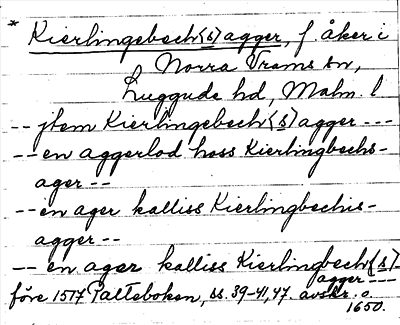 * Kierlingebech(s)agger, f. åker i
Norra Vrams sn,
Luggude hd, Malm. l
-- jtem Kierlingebech(s)agger ---
-- en aggerlod hoss Kierlingbechs-
ager --
-- en ager kalliss Kierlingbechis-
agger --
-- en ager kalliss Kierlingbech(s)-
agger ---
före 1517 Palteboken, ss. 39-41, 47. avskr. o.
1650.